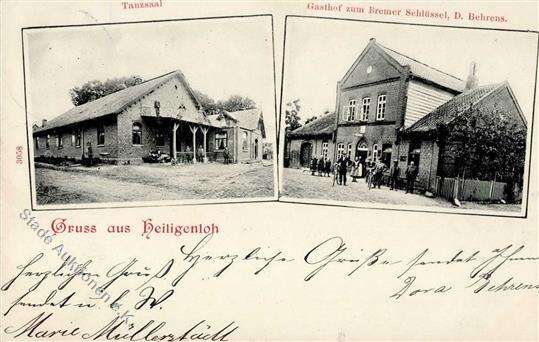 Tanzsaal
Gasthof zum Bremer Schlüssel, D. Behrens.
3058
Gruss aus Heiligenloh
Stade Auktionen e.K.
Herzliche Grüße sendet Ihnen
Dora Behrens
herzlichen Gruß
sendet u. b. W.
Marie Müllerstädt